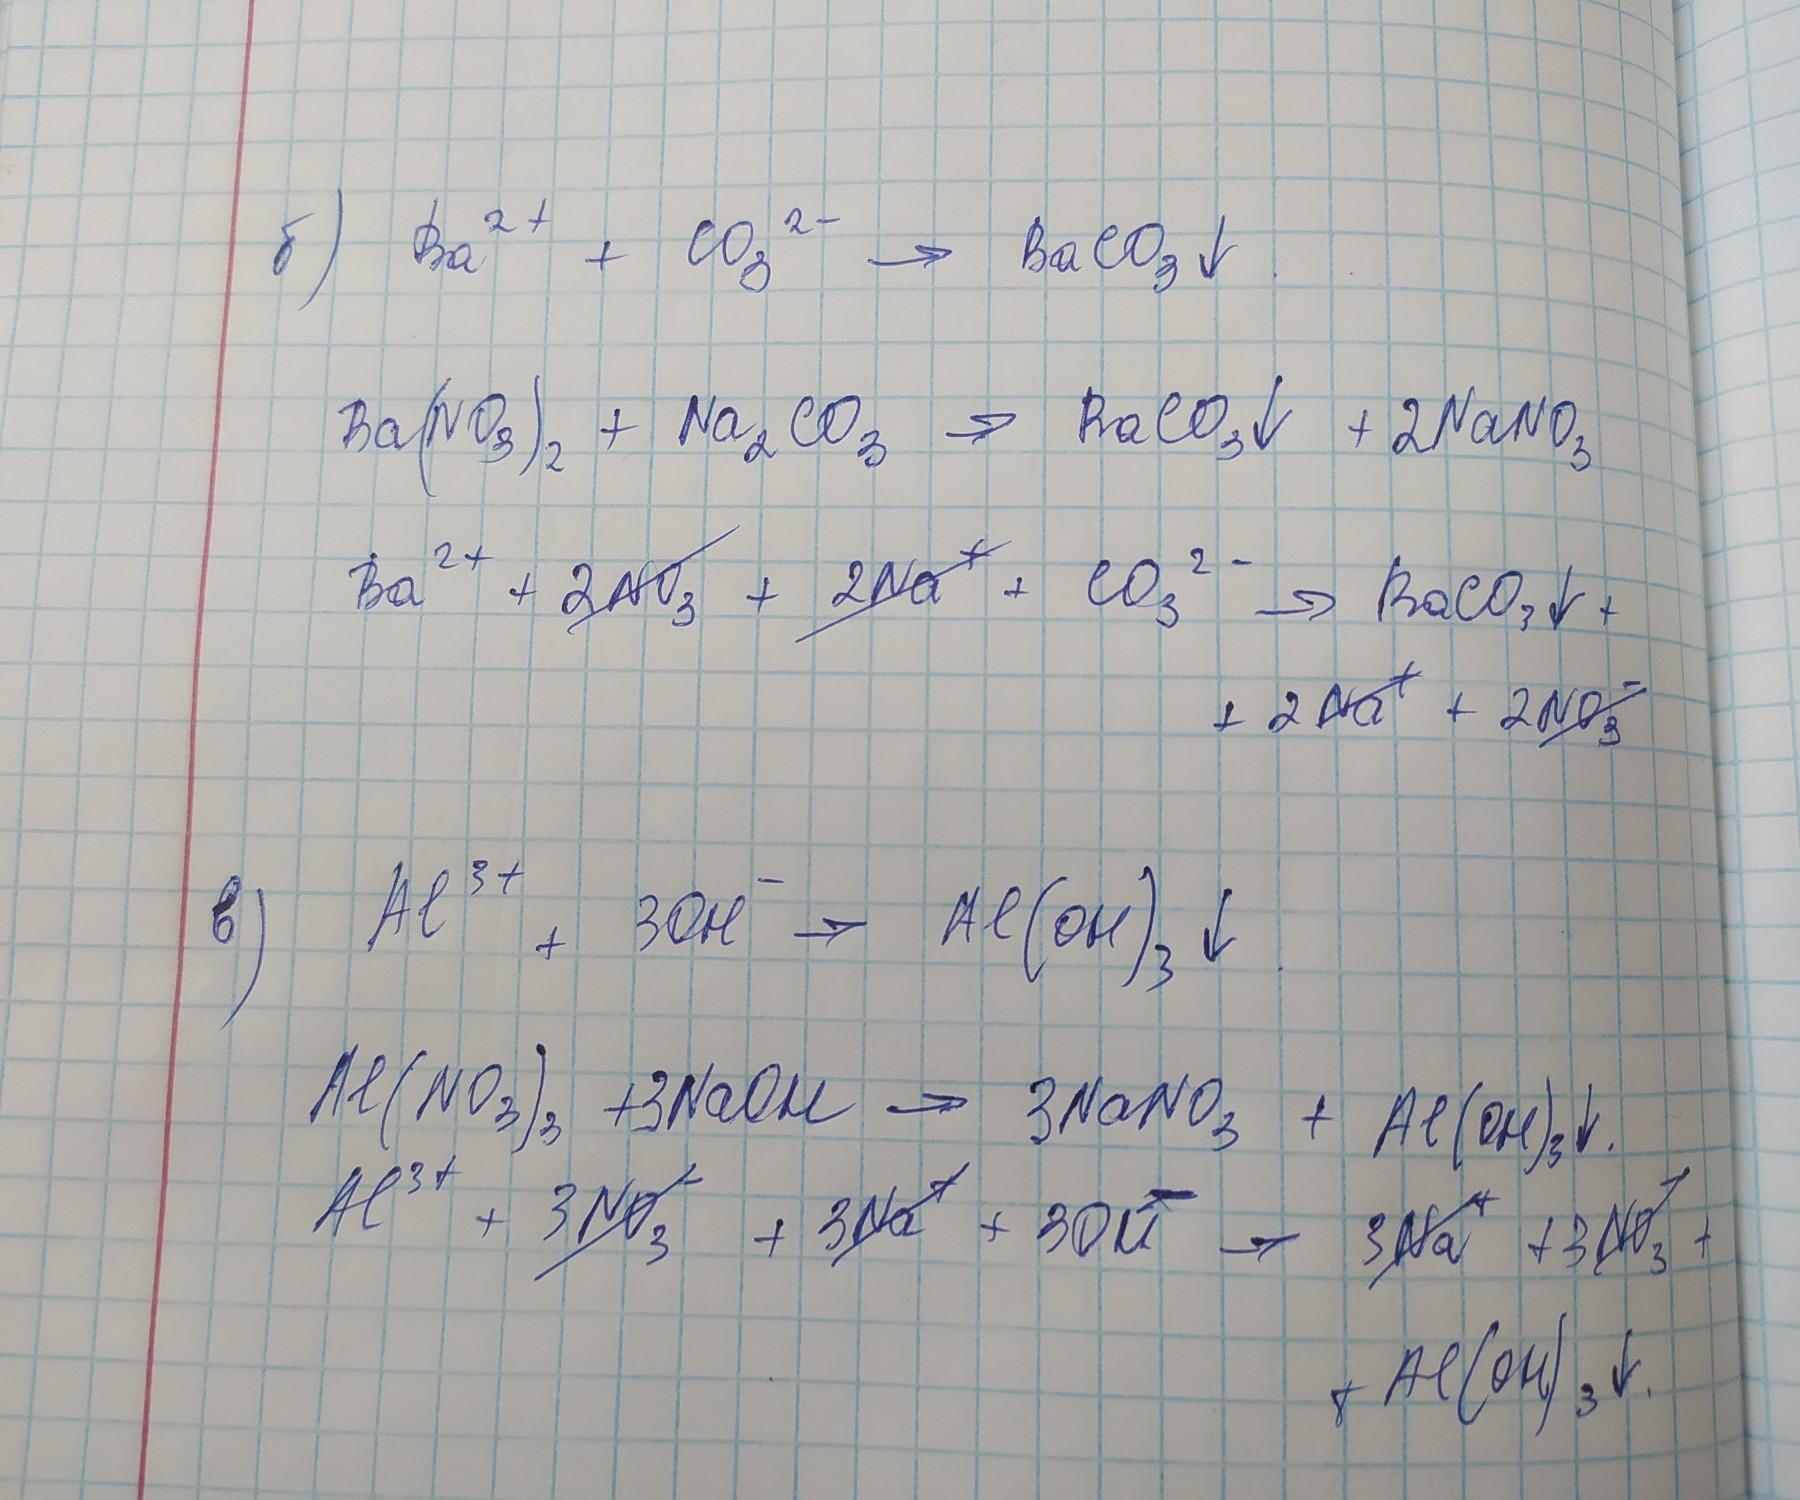 б) Ba²⁺ + CO₃²⁻ → BaCO₃↓.
Ba(NO₃)₂ + Na₂CO₃ → BaCO₃↓ + 2NaNO₃
Ba²⁺ + 2NO₃ + 2Na⁺ + CO₃²⁻ → BaCO₃↓ +
+ 2Na⁺ + 2NO₃⁻
в) Al³⁺ + 3OH⁻ → Al(OH)₃↓.
Al(NO₃)₃ + 3NaOH → 3NaNO₃ + Al(OH)₃↓.
Al³⁺ + 3NO₃⁻ + 3Na⁺ + 3OH⁻ → 3Na⁺ + 3NO₃⁻ +
+ Al(OH)₃↓.